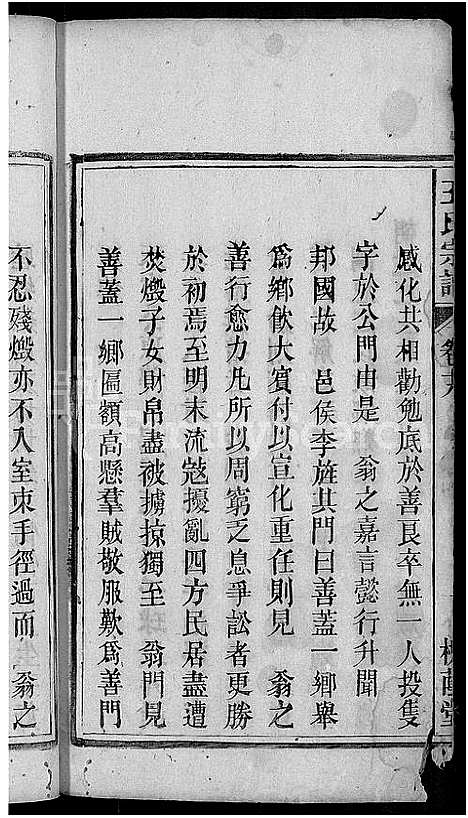 王氏宗譜
感化共相勸勉底於善良卒無一人投隻
字於公門由是　翁之嘉言懿行升聞
邦國故　邑侯李旌其門曰善蓋一鄉舉
為鄉飲大賓付以宣化重任則見　翁之
善行愈力凡所以周窮乏息爭訟者更勝
於初焉至明末流寇擾亂四方民居盡遭
焚燬子女財帛盡被擄掠獨至　翁門見
善蓋一鄉匾額高懸羣賊敬服歎為善門
不忍殘燬亦不入室束手徑過而　翁之